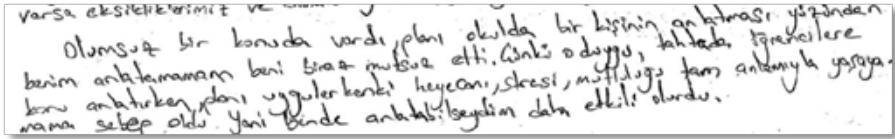 varsa eksikliklerimiz ve
Olumsuz bir konuda vardı, planı okulda bir kişinin anlatması yüzünden
benim anlatamamam beni biraz mutsuz etti. Çünkü o duygu, tahtada öğrencilere
konu anlatırken, planı uygularkenki heyecanı, stresi, mutluluğu tam anlamıyla yaşaya-
mama sebep oldu. Yani bende anlatabilseydim daha etkili olurdu.